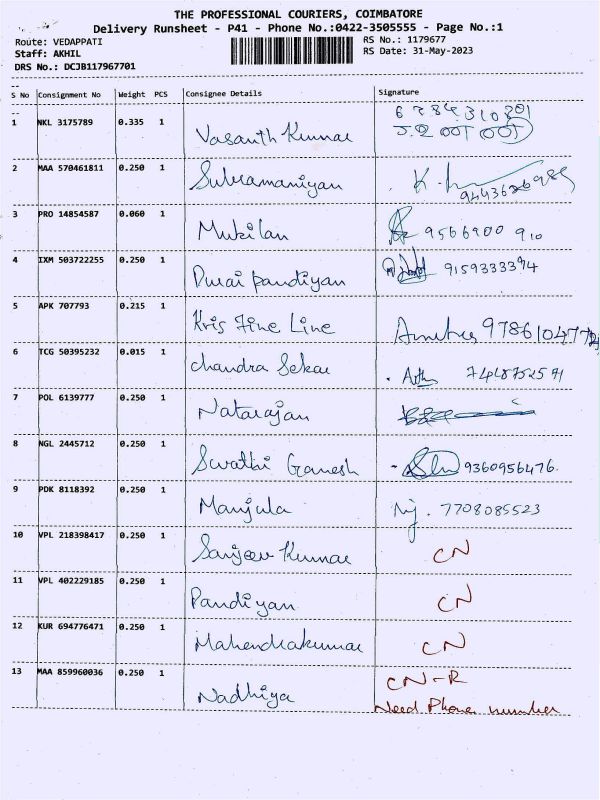 THE PROFESSIONAL COURIERS, COIMBATORE
Delivery Runsheet - P41 - Phone No.:0422-3505555 - Page No.:1
Route: VEDAPPATI
RS No.: 1179677
Staff: AKHIL
RS Date: 31-May-2023
DRS No.: DCJB117967701
S No Consignment No Weight PCS Consignee Details Signature
1 NKL 3175789 0.335 1 Vasanth Kumar
2 MAA 570461811 0.250 1 Subramaniyan
3 PRO 14854587 0.060 1 Mukilan 9566900 910
4 IXM 503722255 0.250 1 Durai pandiyan 9159333394
5 APK 707793 0.215 1 Kris Fine Line
6 TCG 50395232 0.015 1 chandra Sekar
7 POL 6139777 0.250 1 Natarajan
8 NGL 2445712 0.250 1 Swathi Ganesh 9360956476.
9 PDK 8118392 0.250 1 Manjula 7708085523
10 VPL 218398417 0.250 1 Sanjeev Kumar CN
11 VPL 402229185 0.250 1 Pandiyan CN
12 KUR 694776471 0.250 1 Mahendrakumar CN
13 MAA 859960036 0.250 1 Nadhiya CN-R
Need Phone number